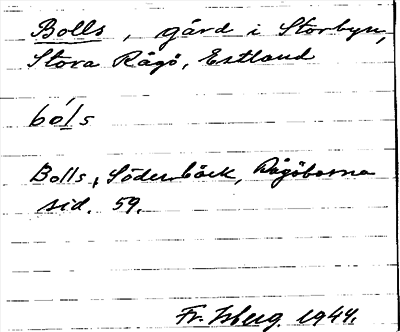 Bolls, gård i Storbyn,
Stora Rågö, Estland
bó̱ls
Bolls, Söderbäck, Rågöborna
sid. 59.
Fr. Isberg. 1944.